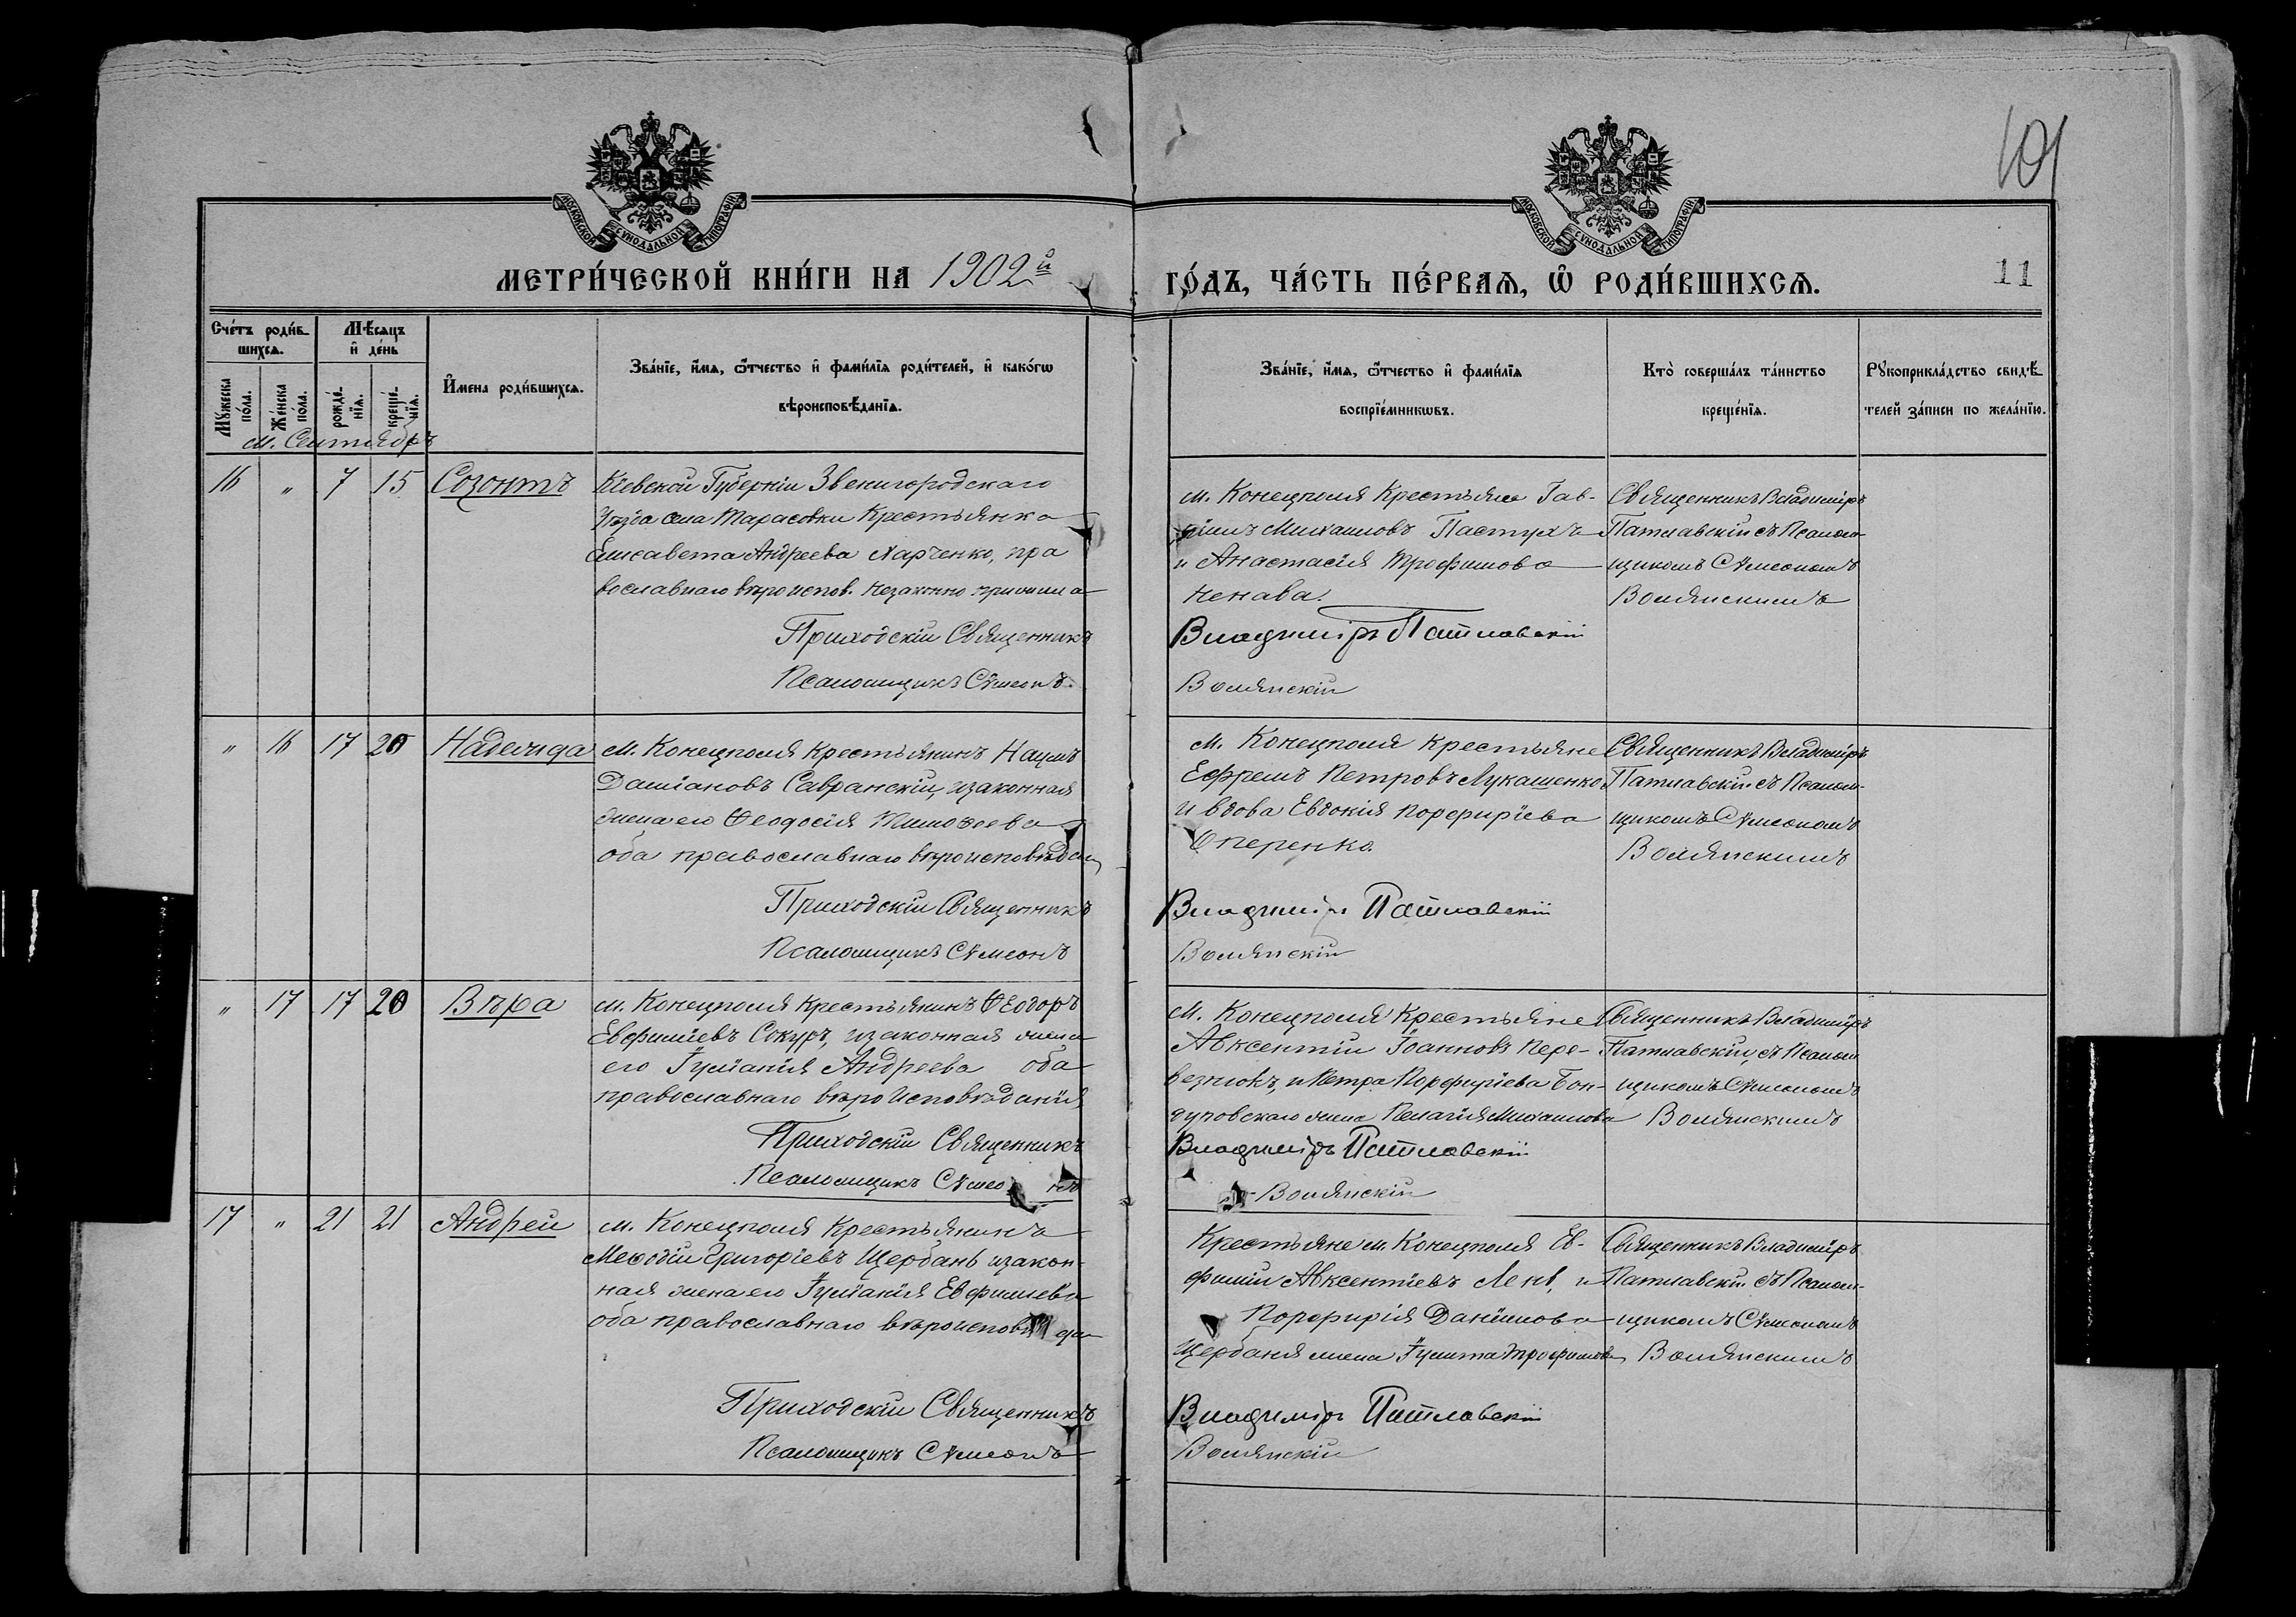 101
МОСКОВСКОЙ СУНОДАЛЬНОЙ ТИПОГРАФІИ
МОСКОВСКОЙ СУНОДАЛЬНОЙ ТИПОГРАФІИ
МЕТРИ́ЧЕСКОЙ КНИ́ГИ НА 1902й
ГО́ДЪ, ЧА́СТЬ ПЕ́РВАѦ, Ѡ РОДИ́ВШИХСѦ.
11
Сче́тъ роди́в-
шихсѧ.
Мѣ́сѧцъ
и҆ де́нь
Мꙋ́жеска
по́ла.
Же́нска
по́ла.
рожде́-
нїѧ.
креще́-
нїѧ.
И҆мена роди́вшихсѧ.
Зва́нїе, и҆́мѧ, ѻ҆́тчество и҆ фами́лїѧ роди́телей, и҆ како́гѡ
вѣроисповѣ́данїѧ.
Зва́нїе, и҆́мѧ, ѻ҆́тчество и҆ фами́лїѧ
воспрїе́мникѡвъ.
Кто̀ соверша́лъ та́инство
креще́нїѧ.
Рꙋкоприкла́дство свидѣ́-
телей за́писи по жела́нїю.
м. Сентябрь
16 " 7 15 Созонтъ
Кіевской Губерніи Звенигородскаго
Уѣзда села Тарасовки Крестьянка
Елисавета Андреева Харченко, пра
вославнаго вѣроиспов. незаконно прижила
Приходскій Священникъ
Псаломщикъ Сѵмеонъ
м. Конецполя Крестьяне Гав-
ріилъ Михаиловъ Пастухъ
и Анастасія Трофимова
Ненава.
Владиміръ Патлавскій
Волянскій
Священникъ Владиміръ
Патлавскій съ Псалом-
щикомъ Сѵмеономъ
Волянскимъ
" 16 17 20 Надежда
м. Конецполя Крестьянинъ Наумъ
Даміановъ Савранскій, изаконная
жена его Ѳеодосія Тимоѳеева
оба православнаго вѣроисповѣдан
Приходскій Священникъ
Псаломщикъ Сѵмеонъ
м. Конецполя крестьяне
Ефремъ Петровъ Лукашенко
и вдова Евдокія Порфиріева
Оперенко.
Владиміръ Патлавскій
Волянскій
Священникъ Владиміръ
Патлавскій съ Псалом-
щикомъ Сѵмеономъ
Волянскимъ
" 17 17 20 Вѣра
м. Конецполя Крестьянинъ Ѳеодоръ
Евфиміевъ Сокуръ, изаконная жена
его Іуліанія Андреева оба
православнаго вѣроисповѣданія,
Приходскій Священникъ
Псаломщикъ Сѵмео нъ
м. Конецполя Крестьяне
Авксентій Іоанновъ Пере-
везнюкъ, и Петра Порфиріева Бон-
дуровскаго жена Пелагія Михаилова
Владиміръ Патлавскій
Волянскій
Священникъ Владиміръ
Патлавскій, съ Псалом
щикомъ Сѵмеономъ
Волянскимъ
17 " 21 21 Андрей
м. Конецполя Крестьянинъ
Меѳодій Григоріевъ Щербань изакон-
ная жена его Іуліанія Евфиміева
оба православнаго вѣроисповѣда
Приходскій Священникъ
Псаломщикъ Сѵмеонъ
Крестьяне м. Конецполя Ев-
фимій Авксентіевъ, и
Порфирія Даніилова
Щербаня жена Іулитта Трофимова
Владиміръ Патлавскій
Волянскій
Священникъ Владиміръ
Патлавскій съ Псалом-
щикомъ Сѵмеономъ
Волянскимъ